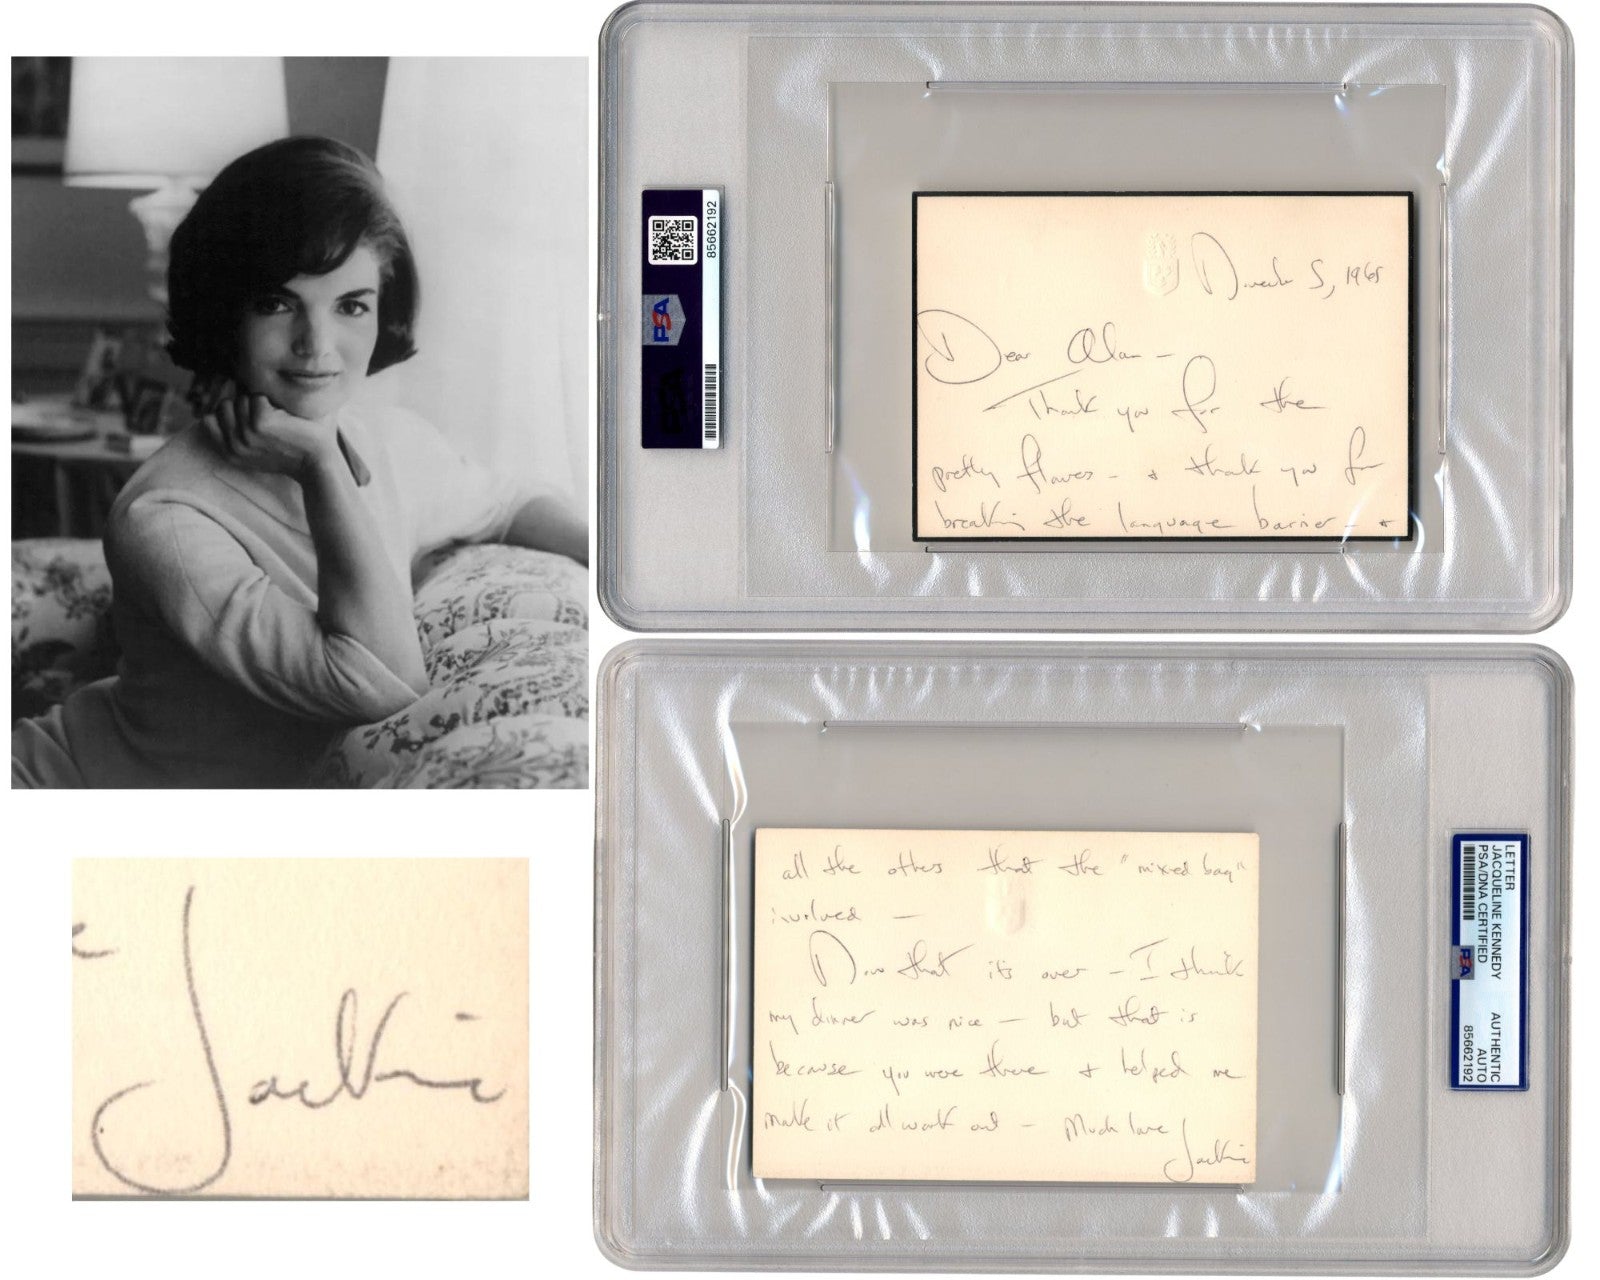 85662192
PSA
November 5, 1965
Dear Alan —
Thank you for the
pretty flowers — + thank you for
breaking the language barrier — +
all the others that the "mixed bag"
involved —
Now that it's over — I think
my dinner was nice — but that is
because you were there + helped me
make it all work out — Much love
Jackie
LETTER
JACQUELINE KENNEDY
PSA/DNA CERTIFIED
PSA
AUTHENTIC
AUTO
85662192
Jackie